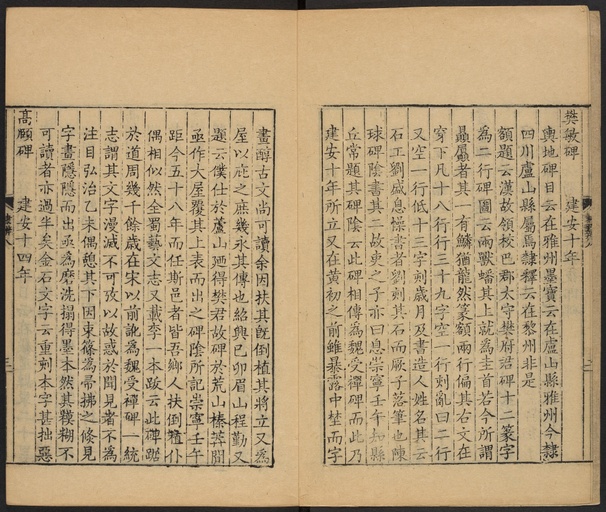 樊敏碑　建安十年
輿地碑目云在雅州墨寶云在盧山縣雅州今隸
四川盧山縣屬焉隸釋云在黎州非是
額題云漢故領校巴郡太守樊府君碑十二篆字
為二行碑圖云兩獸蟠其上就為圭首若今所謂
贔屭者其一有鱗猶龍然篆額兩行偏其右文在
穿下凡十八行行三十九字空一行刺亂曰二行
又空一行低十三字刻歲月及書造人姓名其云
石工劉盛息懆書者劉刻其石而厥子落筆也陳
球碑陰書其二故吏之子亦曰息崇寧壬午知縣
丘常題其碑陰云此碑相傳為魏受禪碑而此乃
建安十年所立又在黄初之前雖暴露中埜而字
畫醇古文尚可讀余因扶其既倒植其將立又為
屋以庇之庶幾永其傳也紹興己卯眉山程勤又
題云僕仕於蘆山廼得樊君故碑於荒榛莾間
亟作大屋覆其上表而出之碑陰所記崇寧壬午
距今五十八年而任斯邑者皆吾鄉人扶倒植仆
偶相似然全蜀藝文志又載李一本跋云此碑踞
於道周幾千餘歲在宋以前訛為魏受禪碑一統
志謂其文字漫滅不可攷以故惑於聞見者不為
注目弘治乙未偶憩其下因束篠為帚拂之倏見
字畫隱隱而出亟為磨洗搨得墨本然其糢糊不
可讀者亦過半矣金石文字云重刻本字甚拙惡
高頤碑　建安十四年